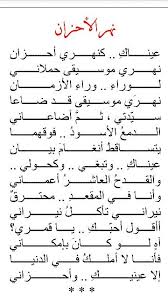 نهر الأحزان
عيناكِ .. كنهري أحـزان
نهري موسيقى حملاني
لوراء .. وراء الأزمان
نهري موسيقى قد ضاعا
سيّدتي ، ثمَّ أضاعاني
الدمعُ الأسودُ .. فوقهما
يتساقط أنغام بيان
عيناك .. وتبغي .. وكحولي ..
والقدحُ العاشرُ أعماني
وأنا في المقعدِ .. محترقٌ
نيراني تأكلُ نيراني
أأقول أحبّكِ .. يا قمري؟
آهٍ لو كان بإمكاني
فأنا لا أملكُ في الدنيا
إلا عينيك .. وأحزاني
* * *